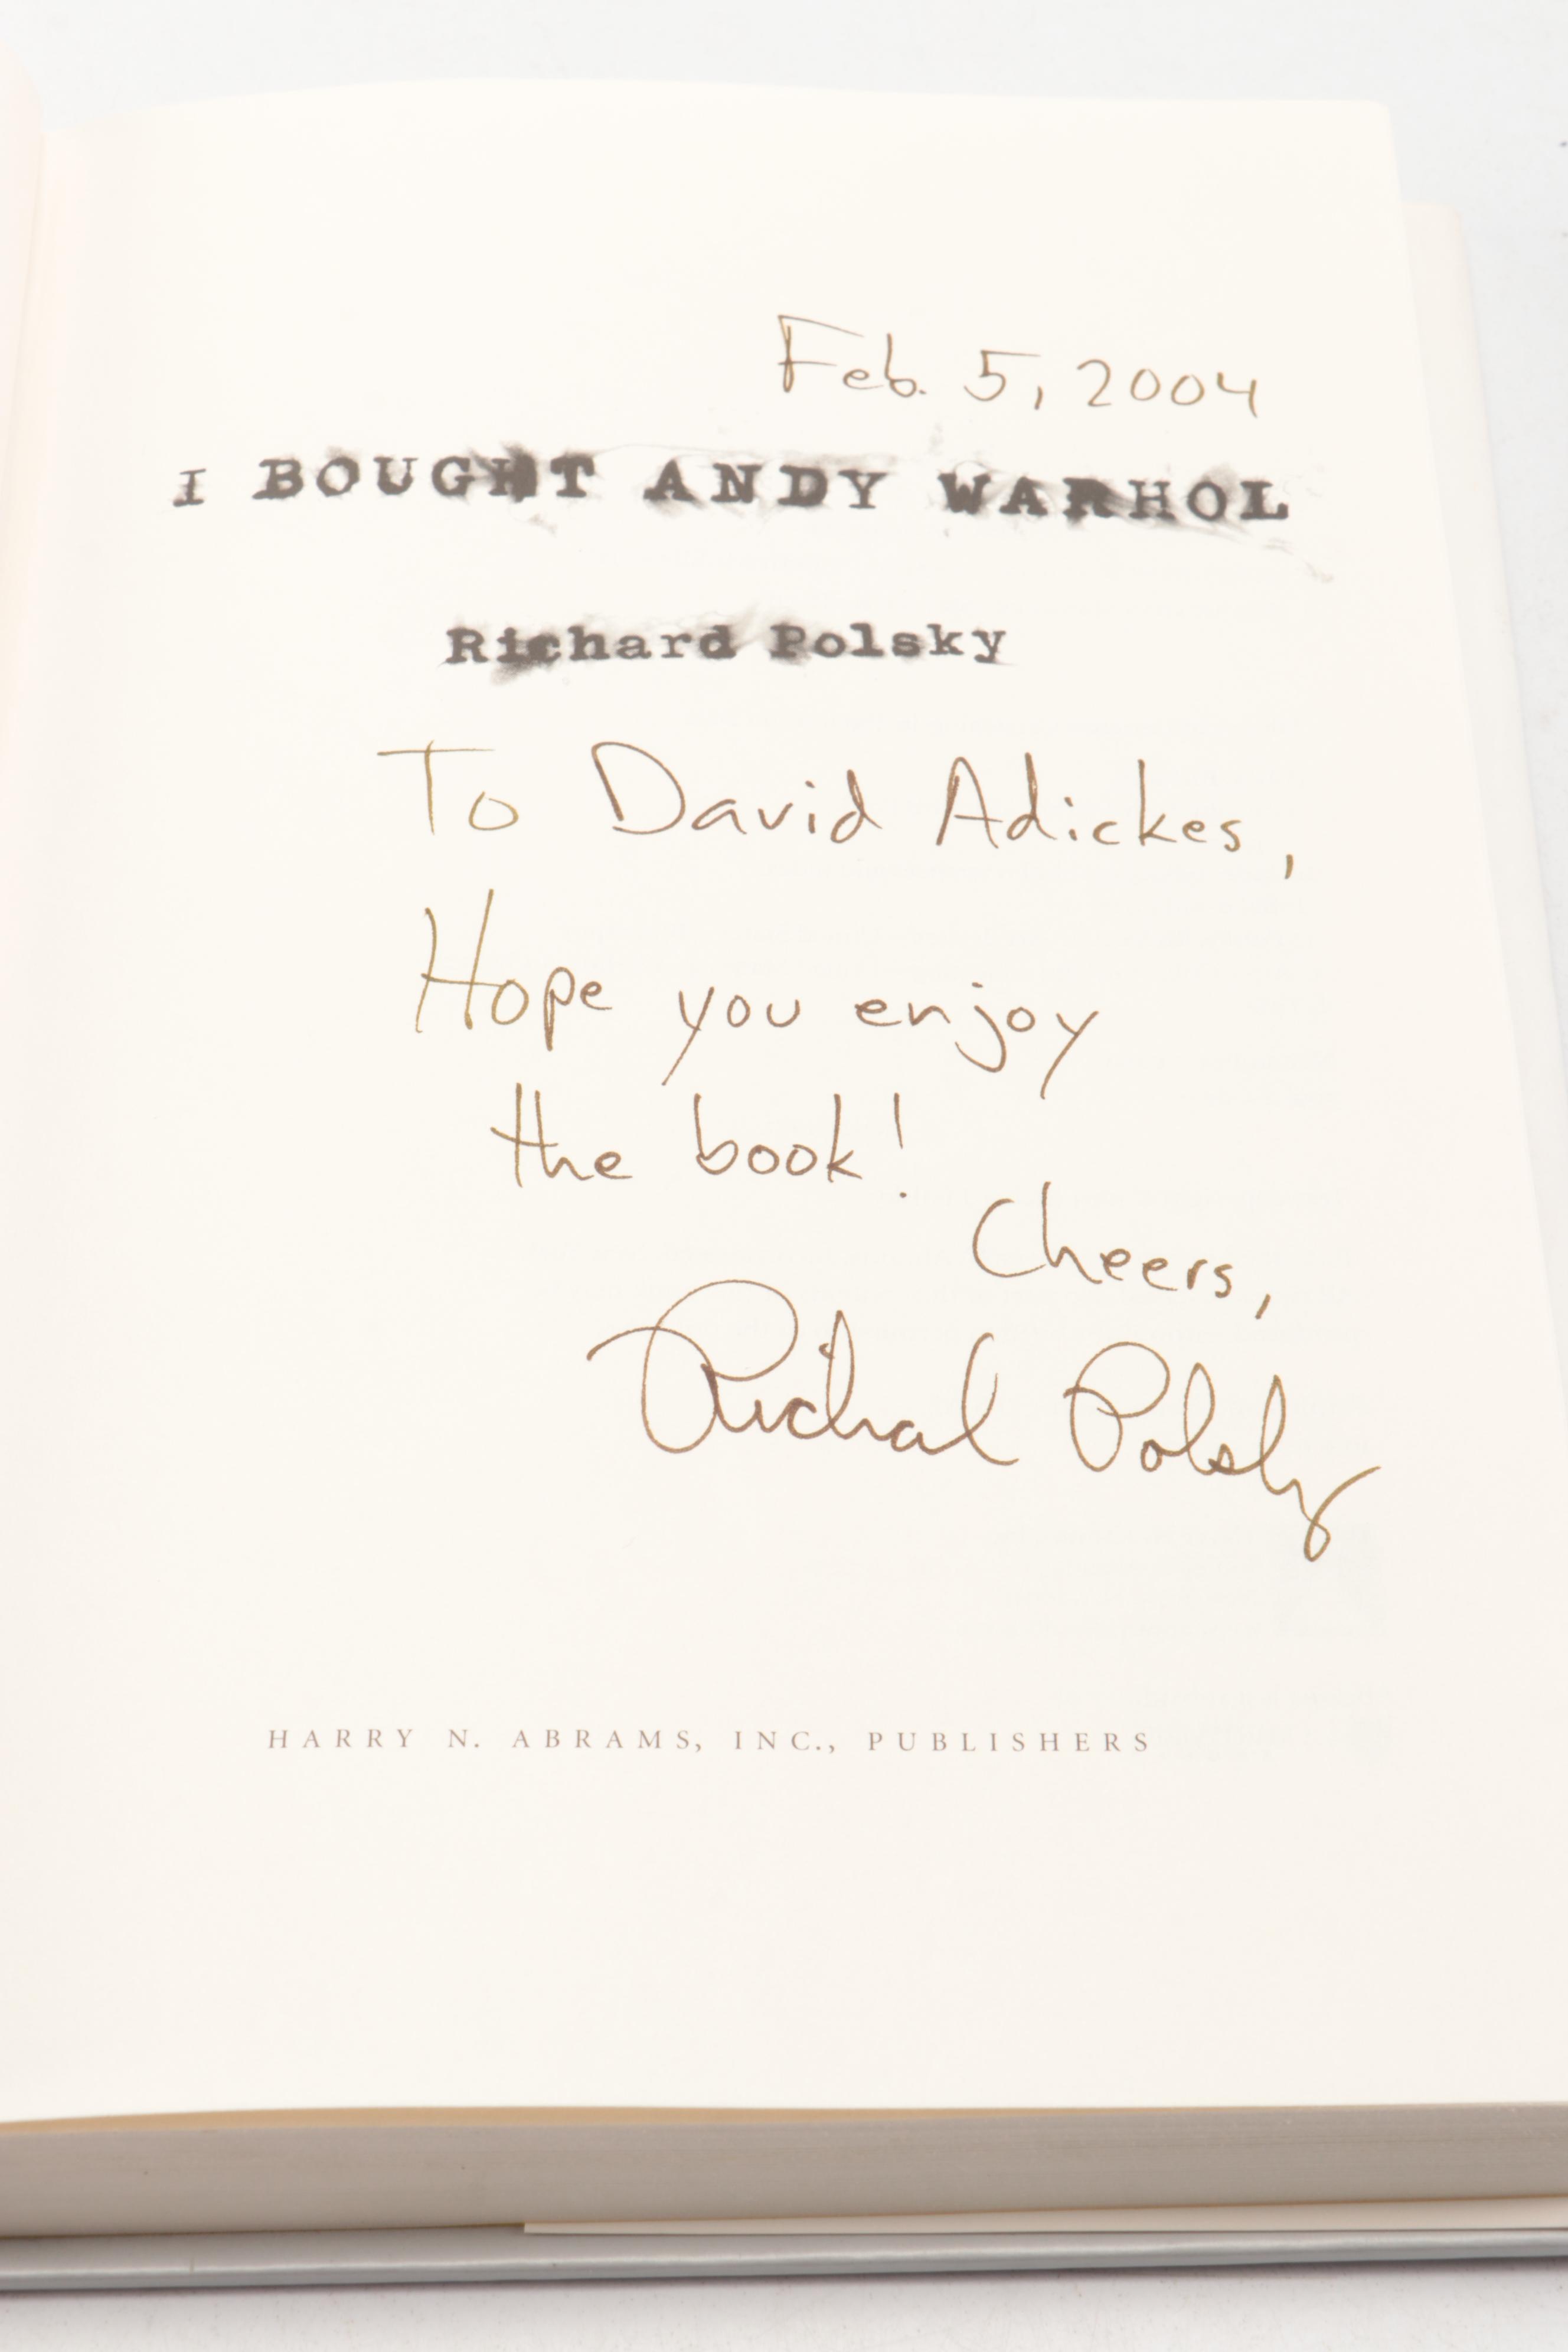 Feb. 5, 2004
I BOUGHT ANDY WARHOL
Richard Polsky
To David Adickes,
Hope you enjoy
the book!
Cheers,
Richard Polsky
HARRY N. ABRAMS, INC., PUBLISHERS